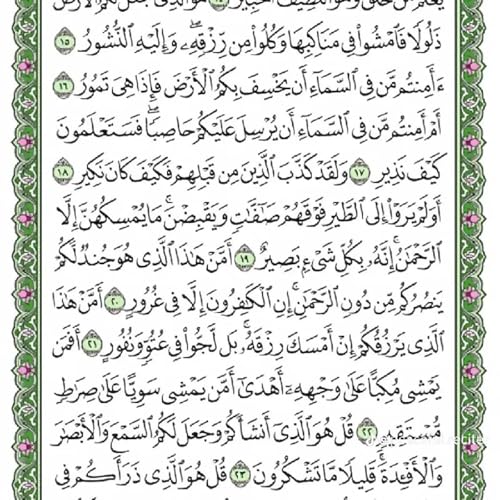 يَعْلَمُ مَنْ خَلَقَ وَهُوَ ٱللَّطِيفُ ٱلْخَبِيرُ ١٤ هُوَ ٱلَّذِى جَعَلَ لَكُمُ ٱلْأَرْضَ
ذَلُولًا فَٱمْشُوا۟ فِى مَنَاكِبِهَا وَكُلُوا۟ مِن رِّزْقِهِۦ ۖ وَإِلَيْهِ ٱلنُّشُورُ ١٥
ءَأَمِنتُم مَّن فِى ٱلسَّمَآءِ أَن يَخْسِفَ بِكُمُ ٱلْأَرْضَ فَإِذَا هِىَ تَمُورُ ١٦
أَمْ أَمِنتُم مَّن فِى ٱلسَّمَآءِ أَن يُرْسِلَ عَلَيْكُمْ حَاصِبًا ۖ فَسَتَعْلَمُونَ
كَيْفَ نَذِيرِ ١٧ وَلَقَدْ كَذَّبَ ٱلَّذِينَ مِن قَبْلِهِمْ فَكَيْفَ كَانَ نَكِيرِ ١٨
أَوَلَمْ يَرَوْا۟ إِلَى ٱلطَّيْرِ فَوْقَهُمْ صَٰٓفَّٰتٍ وَيَقْبِضْنَ ۚ مَا يُمْسِكُهُنَّ إِلَّا
ٱلرَّحْمَٰنُ ۚ إِنَّهُۥ بِكُلِّ شَىْءٍۭ بَصِيرٌ ١٩ أَمَّنْ هَٰذَا ٱلَّذِى هُوَ جُندٌ لَّكُمْ
يَنصُرُكُم مِّن دُونِ ٱلرَّحْمَٰنِ ۚ إِنِ ٱلْكَٰفِرُونَ إِلَّا فِى غُرُورٍ ٢٠ أَمَّنْ هَٰذَا
ٱلَّذِى يَرْزُقُكُمْ إِنْ أَمْسَكَ رِزْقَهُۥ ۚ بَل لَّجُّوا۟ فِى عُتُوٍّ وَنُفُورٍ ٢١ أَفَمَن
يَمْشِى مُكِبًّا عَلَىٰ وَجْهِهِۦٓ أَهْدَىٰٓ أَمَّن يَمْشِى سَوِيًّا عَلَىٰ صِرَٰطٍ
مُّسْتَقِيمٍ ٢٢ قُلْ هُوَ ٱلَّذِىٓ أَنشَأَكُمْ وَجَعَلَ لَكُمُ ٱلسَّمْعَ وَٱلْأَبْصَٰرَ
وَٱلْأَفْـِٔدَةَ ۖ قَلِيلًا مَّا تَشْكُرُونَ ٢٣ قُلْ هُوَ ٱلَّذِى ذَرَأَكُمْ فِى